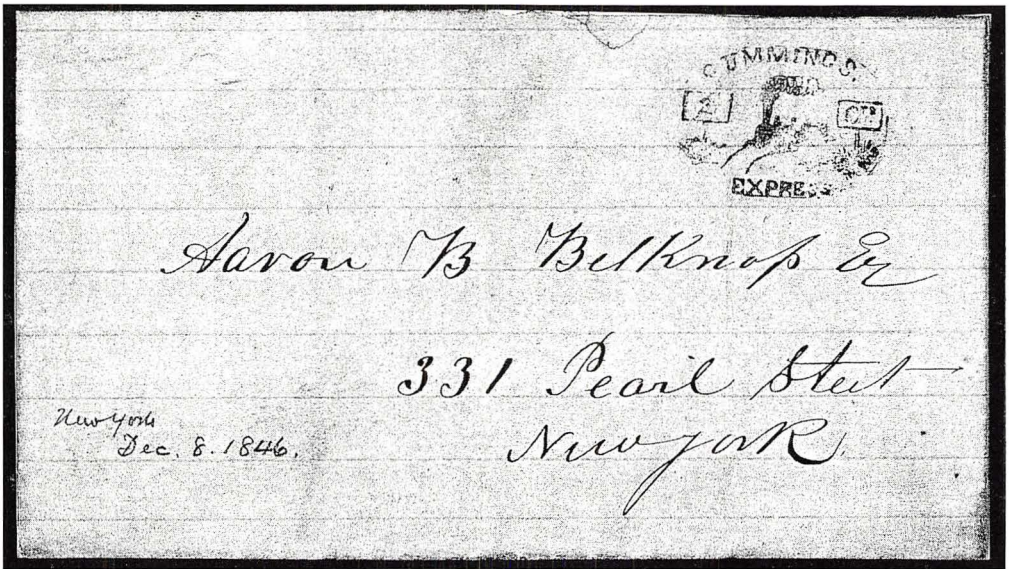 CUMMINGS.
2 CTS
EXPRESS
Aaron B Belknap Es
331 Pearl Street
New York
New York
Dec. 8. 1846.